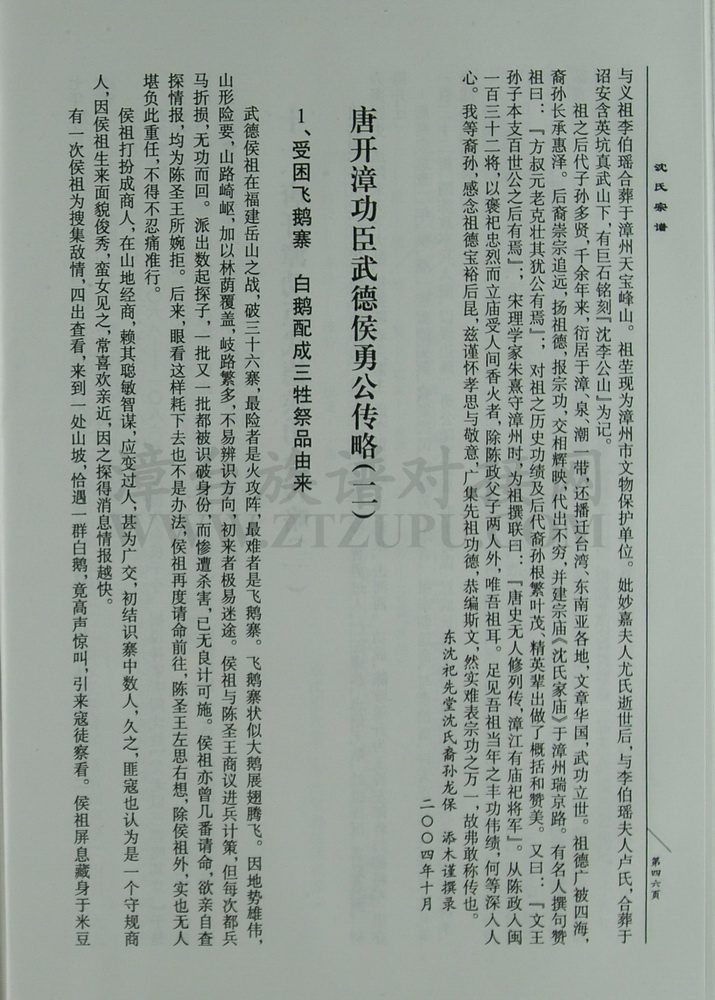 沈氏宗谱
第四六页
与义祖李伯瑶合葬于漳州天宝峰山。祖茔现为漳州市文物保护单位。妣妙嘉夫人尤氏逝世后，与李伯瑶夫人卢氏，合葬于
诏安含英坑真武山下，有巨石铭刻『沈李公山』为记。
祖之后代子孙多贤，千余年来，衍居于漳、泉、潮一带，还播迁台湾、东南亚各地，文章华国，武功立世。祖德广被四海，
裔孙长承惠泽。后裔崇宗追远，扬祖德，报宗功，交相辉映，代出不穷，并建宗庙《沈氏家庙》于漳州瑞京路。有名人撰句赞
祖曰：『方叔元老克壮其犹公有焉』；对祖之历史功绩及后代裔孙根繁叶茂、精英辈出做了概括和赞美。又曰：『文王
孙子本支百世公之后有焉』；宋理学家朱熹守漳州时，为祖撰联曰：『唐史无人修列传，漳江有庙祀将军』。从陈政入闽
一百三十二将，以褒祀忠烈而立庙受人间香火者，除陈政父子两人外，唯吾祖耳。足见吾祖当年之丰功伟绩，何等深入人
心。我等裔孙，感念祖德宝裕后昆，兹谨怀孝思与敬意，广集先祖功德，恭编斯文，然实难表宗功之万一，故弗敢称传也。
东沈祀先堂沈氏裔孙龙保 添木谨撰录
二〇〇四年十月
唐开漳功臣武德侯勇公传略(二)
1、受困飞鹅寨 白鹅配成三牲祭品由来
武德侯祖在福建岳山之战，破三十六寨，最险者是火攻阵，最难者是飞鹅寨。飞鹅寨状似大鹅展翅腾飞。因地势雄伟，
山形险要，山路崎岖，加以林荫覆盖，岐路繁多，不易辨识方向，初来者极易迷途。侯祖与陈圣王商议进兵计策，但每次都兵
马折损，无功而回。派出数起探子，一批又一批都被识破身份，而惨遭杀害，已无良计可施。侯祖亦曾几番请命，欲亲自查
探情报，均为陈圣王所婉拒。后来，眼看这样耗下去也不是办法，侯祖再度请命前往，陈圣王左思右想，除侯祖外，实也无人
堪负此重任，不得不忍痛准行。
侯祖打扮成商人，在山地经商，赖其聪敏智谋，应变过人，甚为广交，初结识寨中数人，久之，匪寇也认为是一个守规商
人，因侯祖生来面貌俊秀，蛮女见之，常喜欢亲近，因之探得消息情报越快。
有一次侯祖为搜集敌情，四出查看，来到一处山坡，恰遇一群白鹅，竟高声惊叫，引来寇徒察看。侯祖屏息藏身于米豆
WWW.ZTZUPU.COM